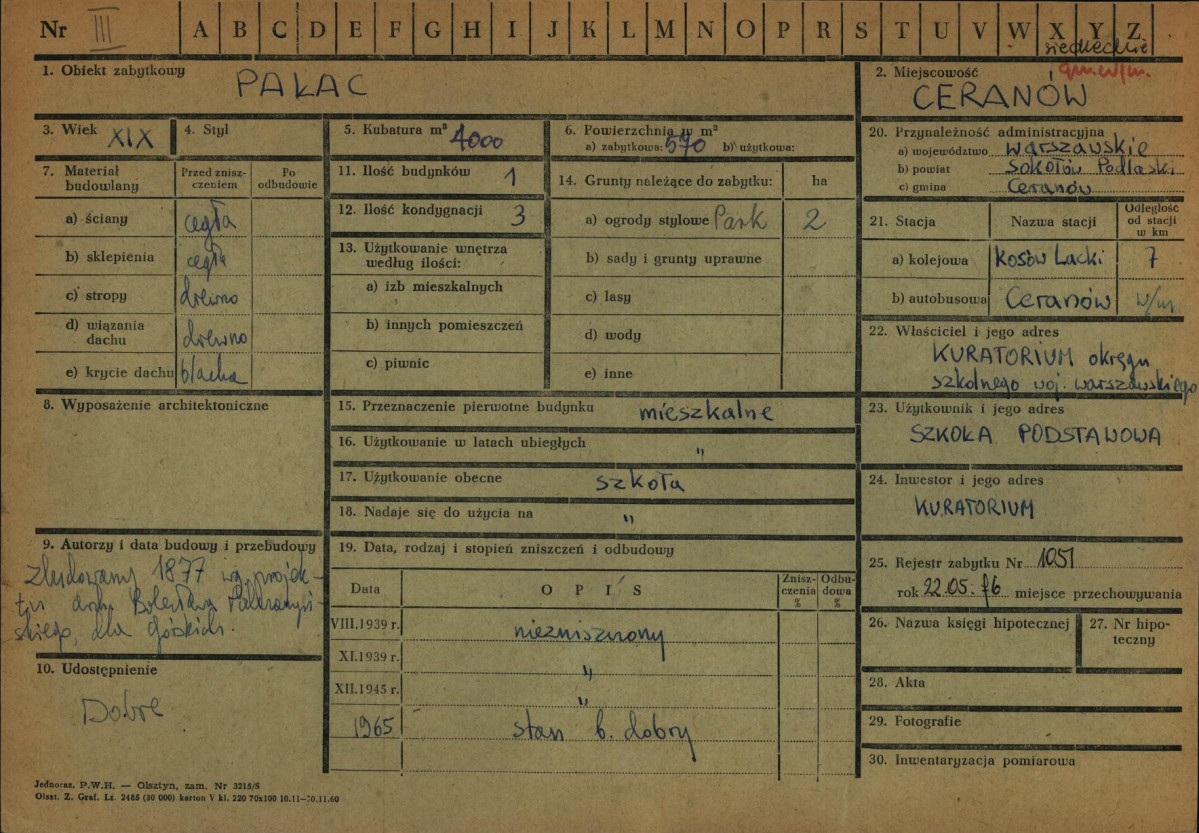 Nr III A B C D E F G H I J K L M N O P R S T U V W X Y Z
siedleckie
1. Obiekt zabytkowy
PAŁAC
2. Miejscowość
gm. w/m.
CERANÓW
3. Wiek XIX
4. Styl
5. Kubatura m³ 4000
6. Powierzchnia w m²
a) zabytkowa: 570 b) użytkowa:
7. Materiał budowlany
Przed zniszczeniem
Po odbudowie
a) ściany cegła
b) sklepienia cegła
c) stropy drewno
d) wiązania dachu drewno
e) krycie dachu blacha
8. Wyposażenie architektoniczne
9. Autorzy i data budowy i przebudowy
Zbudowany 1877 wg projek-
tu arch. Bolesława
skiego, dla Górskich.
10. Udostępnienie
Dobre
11. Ilość budynków 1
12. Ilość kondygnacji 3
13. Użytkowanie wnętrza według ilości:
a) izb mieszkalnych
b) innych pomieszczeń
c) piwnic
14. Grunty należące do zabytku: ha
a) ogrody stylowe Park 2
b) sady i grunty uprawne
c) lasy
d) wody
e) inne
15. Przeznaczenie pierwotne budynku mieszkalne
16. Użytkowanie w latach ubiegłych "
17. Użytkowanie obecne szkoła
18. Nadaje się do użycia na "
19. Data, rodzaj i stopień zniszczeń i odbudowy
Data
OPIS
Zniszczenia %
Odbudowa %
VIII.1939 r. niezniszczony
XI.1939 r. "
XII.1945 r. "
1965 stan b. dobry
20. Przynależność administracyjna
a) województwo warszawskie
b) powiat Sokołów Podlaski
c) gmina Ceranów
21. Stacja
Nazwa stacji
Odległość od stacji w km
a) kolejowa Kosów Lacki 7
b) autobusowa Ceranów w/m
22. Właściciel i jego adres
KURATORIUM okręgu
szkolnego woj. warszawskiego
23. Użytkownik i jego adres
SZKOŁA PODSTAWOWA
24. Inwestor i jego adres
KURATORIUM
25. Rejestr zabytku Nr 1051
rok 22.05.76 miejsce przechowywania
26. Nazwa księgi hipotecznej
27. Nr hipoteczny
28. Akta
29. Fotografie
30. Inwentaryzacja pomiarowa
Jednoraz. P.W.H. — Olsztyn, zam. Nr 3215/S
Olszt. Z. Graf. Lz. 2485 (30 000) karton V kl. 220 70x100 10.11–